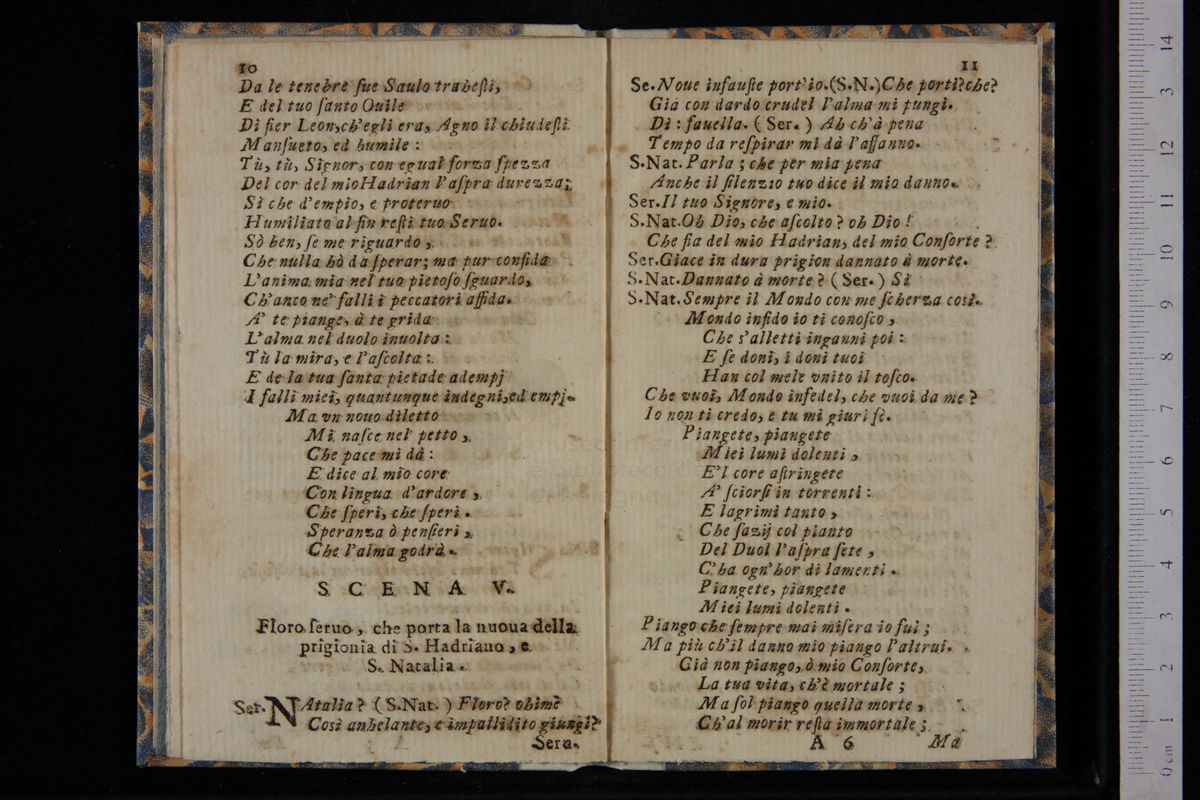 10
Da le tenebre sue Saulo trahesti,
E del tuo santo Ouile
Di fier Leon, ch'egli era, Agno il chiudesti
Mansueto, ed humile :
Tù, tù, Signor, con egual forza spezza
Del cor del mio Hadrian l'aspra durezza;
Sì che d'empio, e proteruo
Humiliato al fin resti tuo Seruo.
Sò ben, se me riguardo,
Che nulla hò da sperar; ma pur confida
L'anima mia nel tuo pietoso sguardo,
Ch'anco ne' falli i peccatori affida.
A' te piange, à te grida
L'alma nel duolo inuolta :
Tù la mira, e l'ascolta :
E de la tua santa pietade adempj
I falli miei, quantunque indegni, ed empj.
Ma vn nouo diletto
Mi nasce nel petto,
Che pace mi dà :
E dice al mio core
Con lingua d'ardore,
Che speri, che speri.
Speranza ò pensieri,
Che l'alma godrà.
SCENA V.
Floro seruo, che porta la nuoua della
prigionia di S. Hadriano, e
S. Natalia.
Ser. NAtalia? (S.Nat.) Floro? ohimè
Così anhelante, e impallidito giungi?
Sera.
11
Se. Noue infauste port'io. (S.N.) Che porti? che?
Già con dardo crudel l'alma mi pungi.
Dì : fauella. (Ser.) Ah ch'à pena
Tempo da respirar mi dà l'affanno.
S.Nat. Parla ; che per mia pena
Anche il silenzio tuo dice il mio danno.
Ser. Il tuo Signore, e mio.
S.Nat. Oh Dio, che ascolto ? oh Dio !
Che fia del mio Hadrian, del mio Consorte ?
Ser. Giace in dura prigion dannato à morte.
S.Nat. Dannato à morte ? (Ser.) Sì
S.Nat. Sempre il Mondo con me scherza così.
Mondo infido io ti conosco,
Che s'alletti inganni poi :
E se doni, i doni tuoi
Han col mele vnito il tosco.
Che vuoi, Mondo infedel, che vuoi da me ?
Io non ti credo, e tu mi giuri fè.
Piangete, piangete
Miei lumi dolenti,
E'l core astringete
A' sciorsi in torrenti :
E lagrimi tanto,
Che sazij col pianto
Del Duol l'aspra sete,
C'ha ogn'hor di lamenti.
Piangete, piangete
Miei lumi dolenti.
Piango che sempre mai misera io fui ;
Ma più ch'il danno mio piango l'altrui.
Già non piango, ò mio Consorte,
La tua vita, ch'è mortale ;
Ma sol piango quella morte,
Ch'al morir resta immortale ;
A 6
Ma
0 cm 1 2 3 4 5 6 7 8 9 10 11 12 3 14